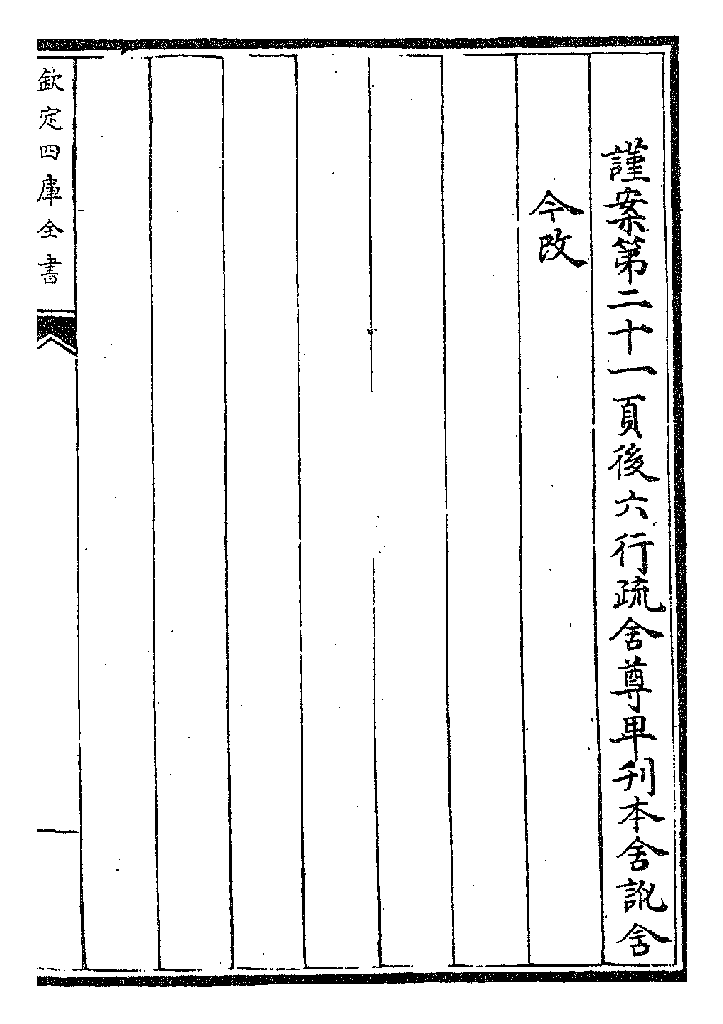 謹案第二十一頁後六行疏舍尊卑刊本舍訛舍
今改
欽定四庫全書